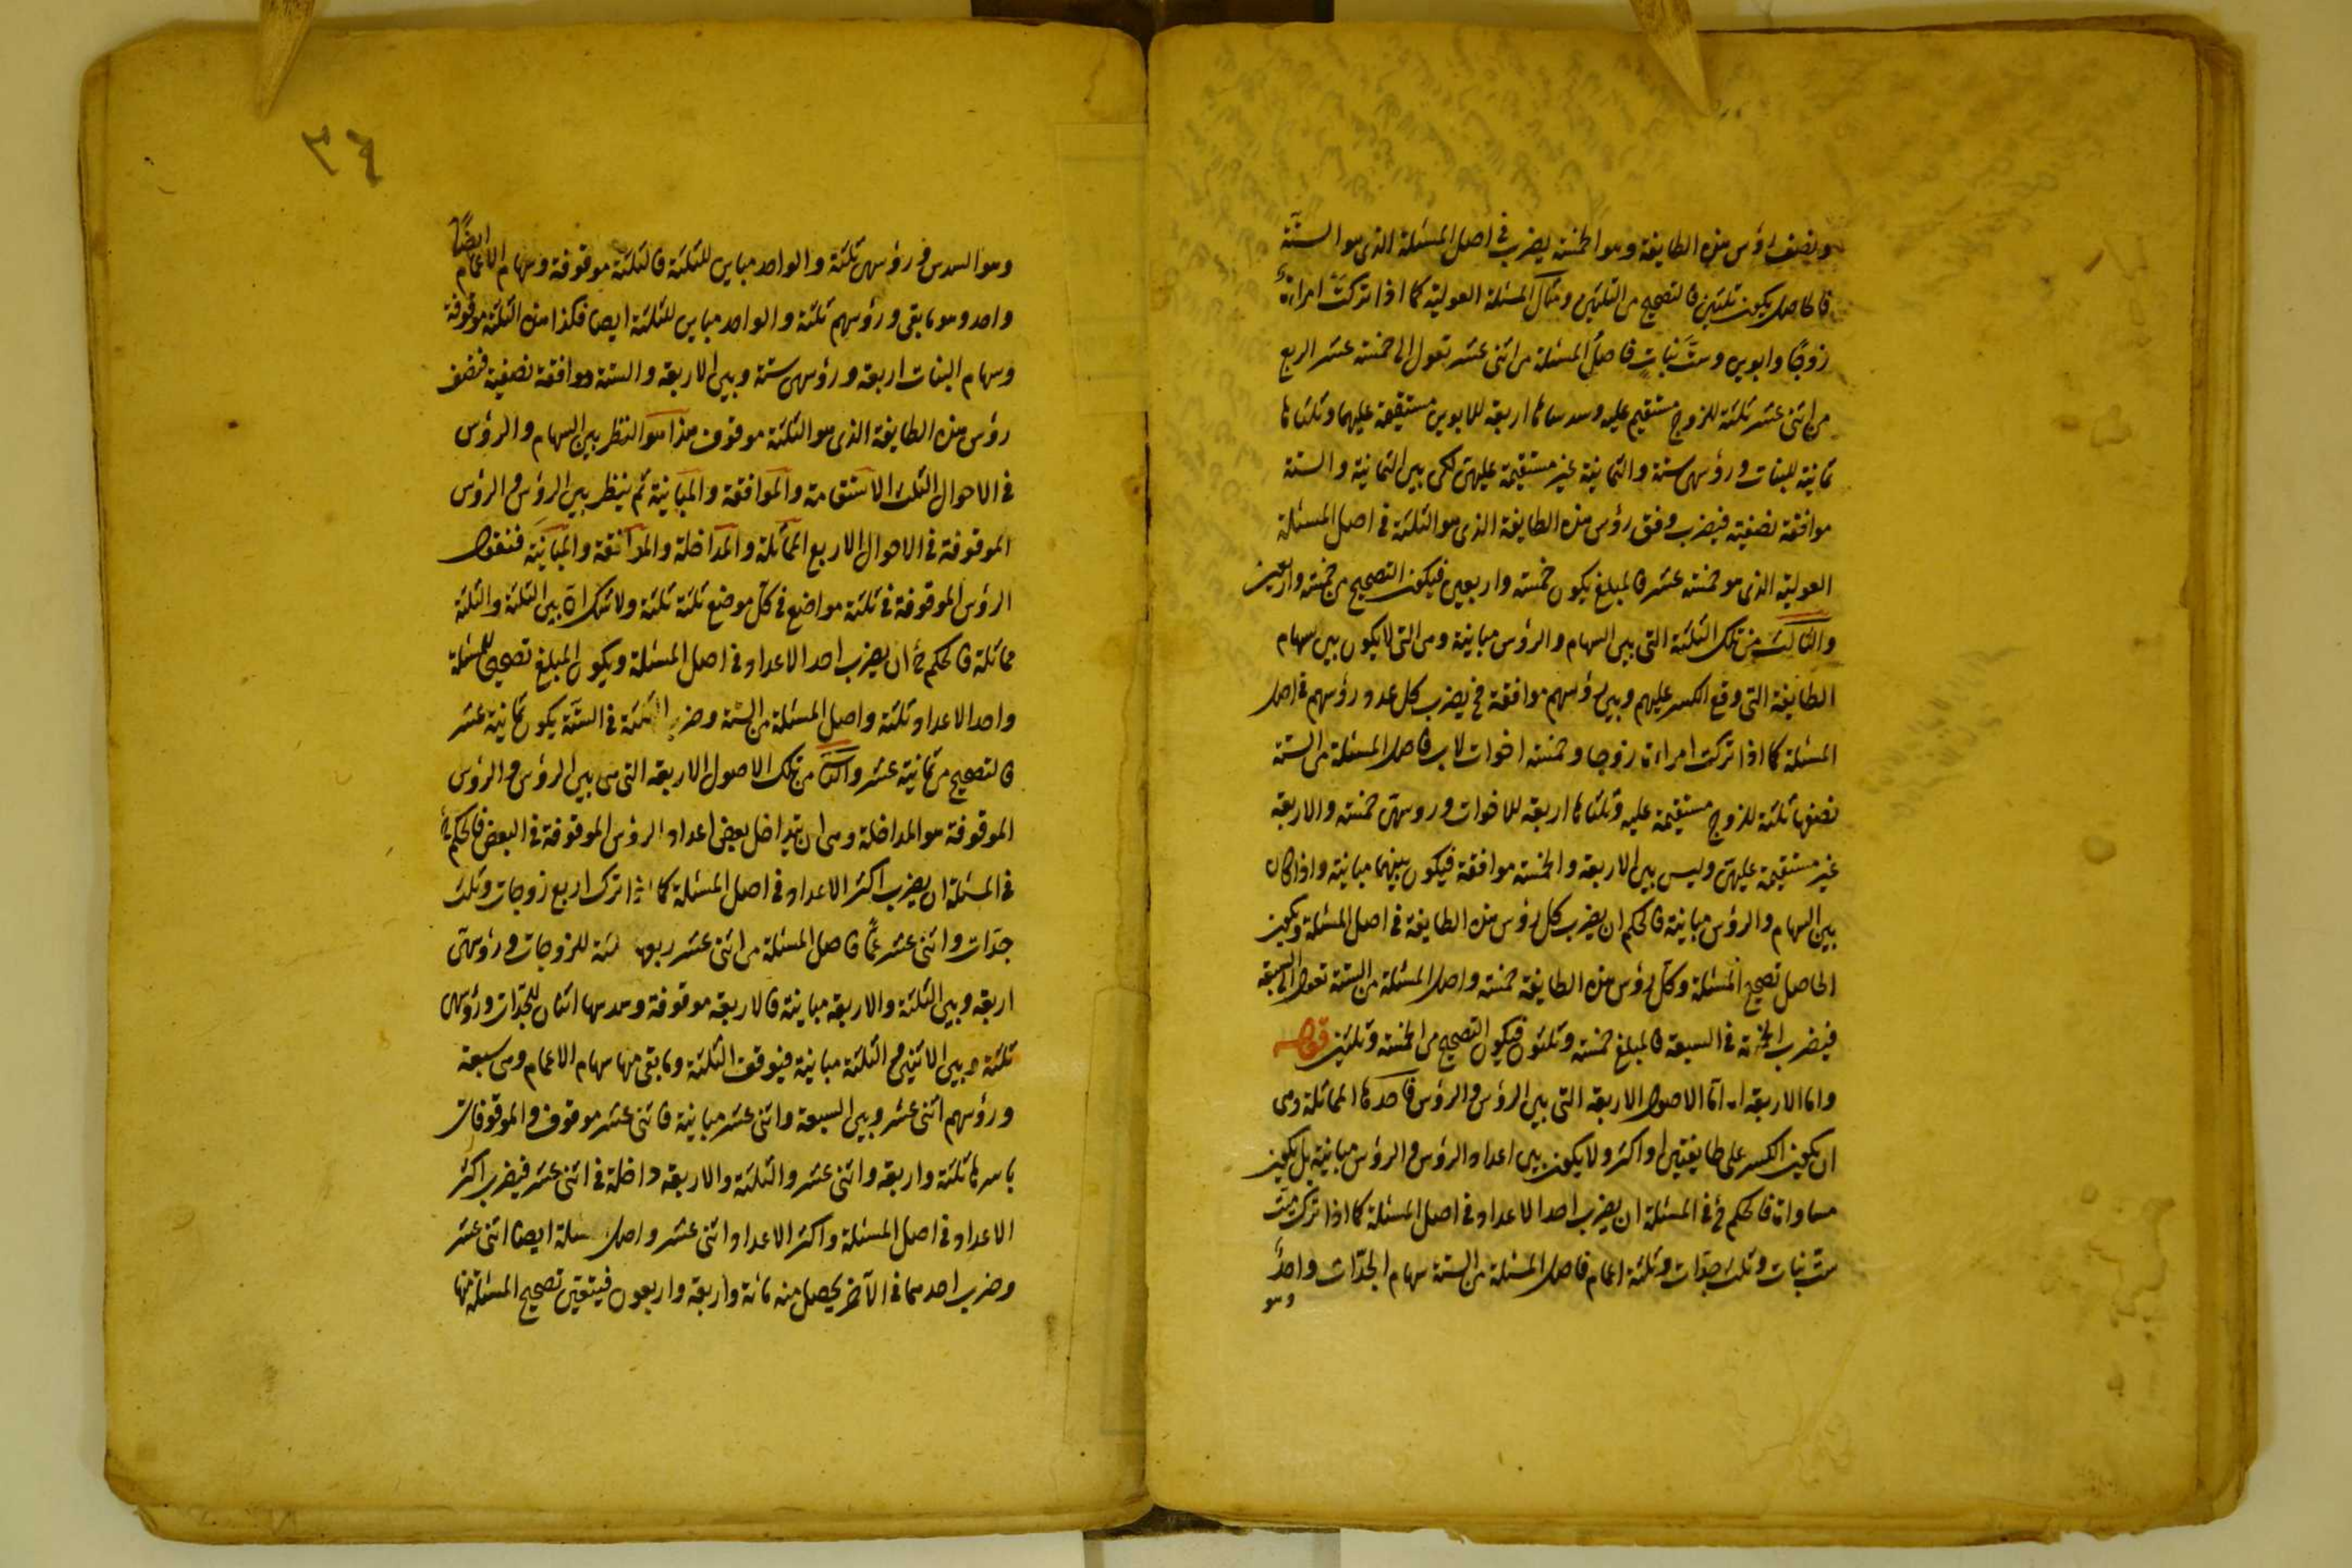 ونصف رؤس هذه الطايفة وهو الخمسة يضرب فى اصل المسئلة الذى هو الستّة
فالحاصل يكون ثلثين فالتصحيح من الثلثين ومثال المسئلة العولية كما اذا تركت امراءة
زوجًا وابوين وستَّ بنات فاصل المسئلة من اثنى عشر تعول الى خمسة عشر الربع
من اثنى عشر ثلثة للزوج مستقيم عليه وسدساها اربعة للابوين مستقيمة عليهما وثلثاها
ثمانية للبنات ورؤسهن ستة والثمانية غير مستقيمة عليهنّ لكن بين الثمانية والستة
موافقة نصفية فيضرب وفق رؤس هذه الطايفة الذى هو الثلثة فى اصل المسئلة
العولية الذى هو خمسة عشر فالمبلغ يكون خمسة واربعين فيكون التصحيح من خمسة واربعين
والثالث من تلك الثلثة التى بين السهام والرؤس مباينة وهى التى لا يكون بين سهام
الطايفة التى وقع الكسر عليهم وبين رؤسهم موافقة فح يضرب كل عدد رؤسهم فى اصل
المسئلة كما اذا تركت امراءة زوجا وخمسة اخوات لاب فاصل المسئلة من الستة
نصفها ثلثة للزوج مستقيمة عليه وثلثاها اربعة للاخوات وروسهنّ خمسة والاربعة
غير مستقيمة عليهنّ وليس بين الاربعة والخمسة موافقة فيكون بينهما مباينة واذا كان
بين السهام والرؤس مباينة فالحكم ان يضرب كل رؤس هذه الطايفة فى اصل المسئلة ويكون
الحاصل تصحيح المسئلة وكل رؤس هذه الطايفة خمسة واصل المسئلة من الستة تعول الى السبعة
فيضرب الخمسة فى السبعة فالمبلغ خمسة وثلثون فيكون التصحيح من الخمسة وثلثين قوله
واما الاربعة امّا الاصول الاربعة التى بين الرؤس والرؤس فاحدها المماثلة وهى
ان يكون الكسر على طايفتين او اكثر ولا يكون بين اعداد الرؤس والرؤس مباينة بل يكون
مساواة فالحكم ح فى المسئلة ان يضرب احد الاعداد فى اصل المسئلة كما اذا ترك ميّت
ستّ بنات وثلث جدّات وثلثة اعمام فاصل المسئلة من الستة سهام الجدّات واحدٌ
وهو
٣٤
وهو السدس ورؤسهن ثلثة والواحد مباين للثلثة فالثلثة موقوفة وسهام الاعمام ايضًا
واحد وهو ما بقى ورؤسهم ثلثة والواحد مباين للثلثة ايضا فكذا هذه الثلثة موقوفة
وسهام البنات اربعة ورؤسهن ستة وبين الاربعة والستة موافقة نصفية فنصف
رؤس هذه الطايفة الذى هو الثلثة موقوف هذا هو النظر بين السهام والرؤس
فى الاحوال الثلث الاستقامة والموافقة والمباينة ثم ينظر بين الرؤس والرؤس
الموقوفة فى الاحوال الاربع المماثلة والمداخلة والموافقة والمباينة فنقول
الرؤس الموقوفة فى ثلثة مواضع فى كل موضع ثلثة ثلثة ولا شك ان بين الثلثة والثلثة
مماثلة فالحكم ح ان يضرب احد الاعداد فى اصل المسئلة ويكون المبلغ تصحيح للمسئلة
واحد الاعداد ثلثة واصل المسئلة من الستة وضرب الثلثة فى الستّة يكون ثمانية عشر
فالتصحيح من ثمانية عشر والثانى من تلك الاصول الاربعة التى هى بين الرؤس والرؤس
الموقوفة هو المداخلة وهى ان يتداخل بعض اعداد الرؤس الموقوفة فى البعض فالحكم ح
فى المسئلة ان يضرب اكثر الاعداد فى اصل المسئلة كما اذا ترك اربع زوجات وثلث
جدّات واثنى عشر عمًّا فاصل المسئلة من اثنى عشر ربعها ثلثة للزوجات ورؤسهنّ
اربعة وبين الثلثة والاربعة مباينة فالاربعة موقوفة وسدسها اثنان للجدّات ورؤسهن
ثلثة وبين الاثنين والثلثة مباينة فيوقف الثلثة وما بقى منها سهام الاعمام وهى سبعة
ورؤسهم اثنى عشر وبين السبعة واثنى عشر مباينة فاثنى عشر موقوف والموقوفات
باسرها ثلثة واربعة واثنى عشر والثلثة والاربعة داخلة فى اثنى عشر فيضرب اكثر
الاعداد فى اصل المسئلة واكثر الاعداد اثنى عشر واصل المسئلة ايضا اثنى عشر
وضرب احدهما فى الآخر يحصل منه مائة واربعة واربعون فيتعين تصحيح المسئلة منها